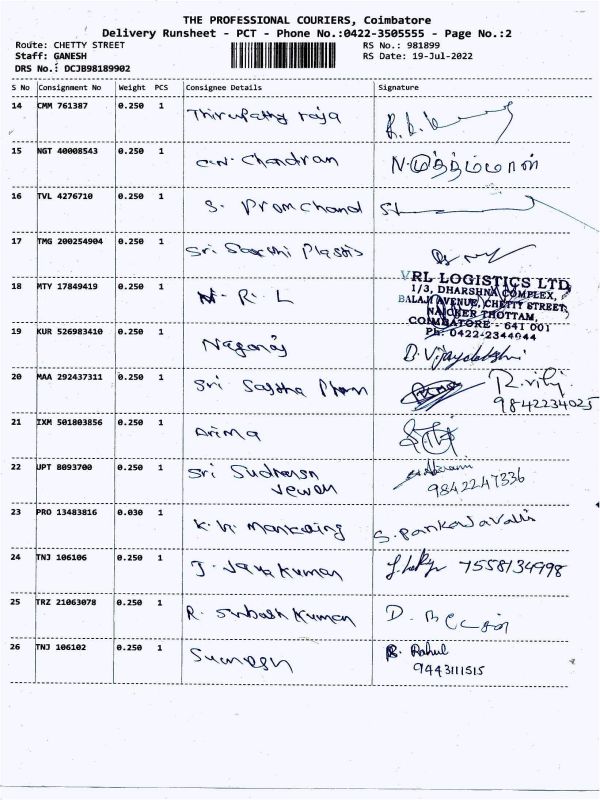 THE PROFESSIONAL COURIERS, Coimbatore
Delivery Runsheet - PCT - Phone No.:0422-3505555 - Page No.:2
Route: CHETTY STREET RS No.: 981899
Staff: GANESH RS Date: 19-Jul-2022
DRS No.: DCJB98189902
S No Consignment No Weight PCS Consignee Details Signature
14 CMM 761387 0.250 1 Thirupathy raja
15 NGT 40008543 0.250 1 C.N. Chandran
16 TVL 4276710 0.250 1 S. Promchand
17 TMG 200254904 0.250 1 Sri
18 MTY 17849419 0.250 1 R. L
VRL LOGISTICS LTD
1/3, DHARSHNA COMPLEX,
BALAJI AVENUE, CHETTY STREET,
NAICKER THOTTAM,
COIMBATORE - 641 001
PH: 0422-2344044
19 KUR 526983410 0.250 1 Nagaraj
20 MAA 292437311 0.250 1 Sri Sastha
9842234025
21 IXM 501803856 0.250 1 Arima
22 UPT 8093700 0.250 1 Sri
9842247336
23 PRO 13483816 0.030 1 K.
24 TNJ 106106 0.250 1 J. Jayakumar 7558134998
25 TRZ 21063078 0.250 1 R. Subash Kumar D.
26 TNJ 106102 0.250 1 R. Rahul
9443111515